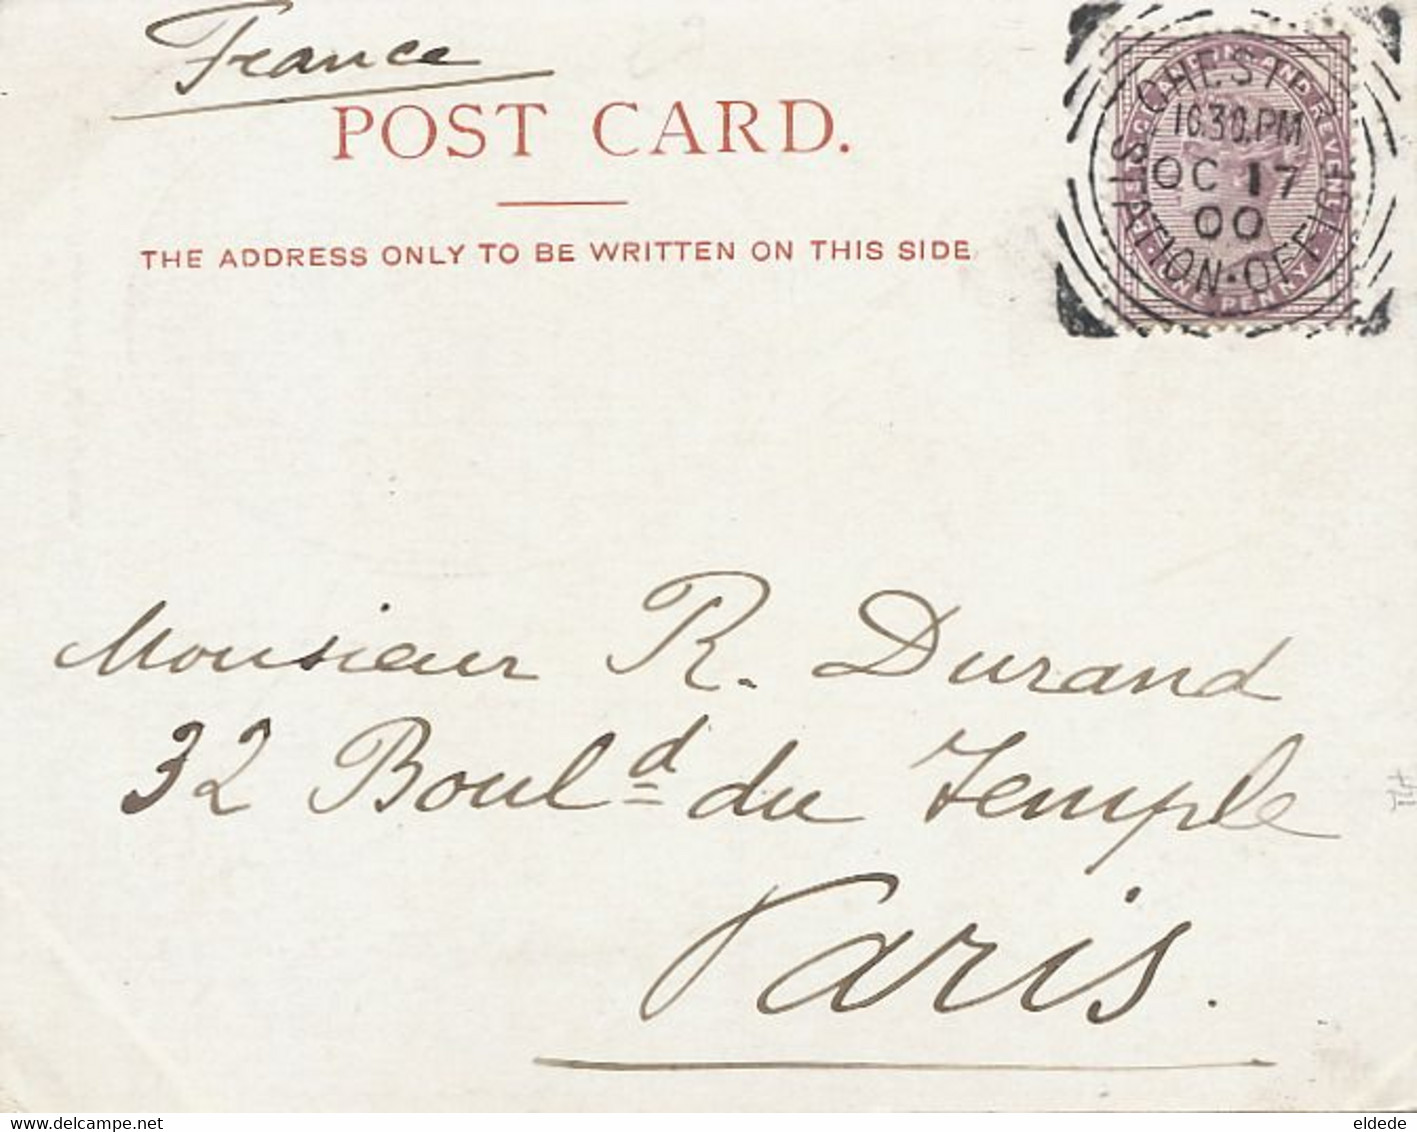 France
POST CARD.
THE ADDRESS ONLY TO BE WRITTEN ON THIS SIDE
CHESTER STATION·OFFICE
10.30.PM
OC 17
00
POSTAGE & INLAND REVENUE
ONE PENNY
Monsieur R. Durand
32 Boul.d du Temple
Paris.
www.delcampe.net
eldede